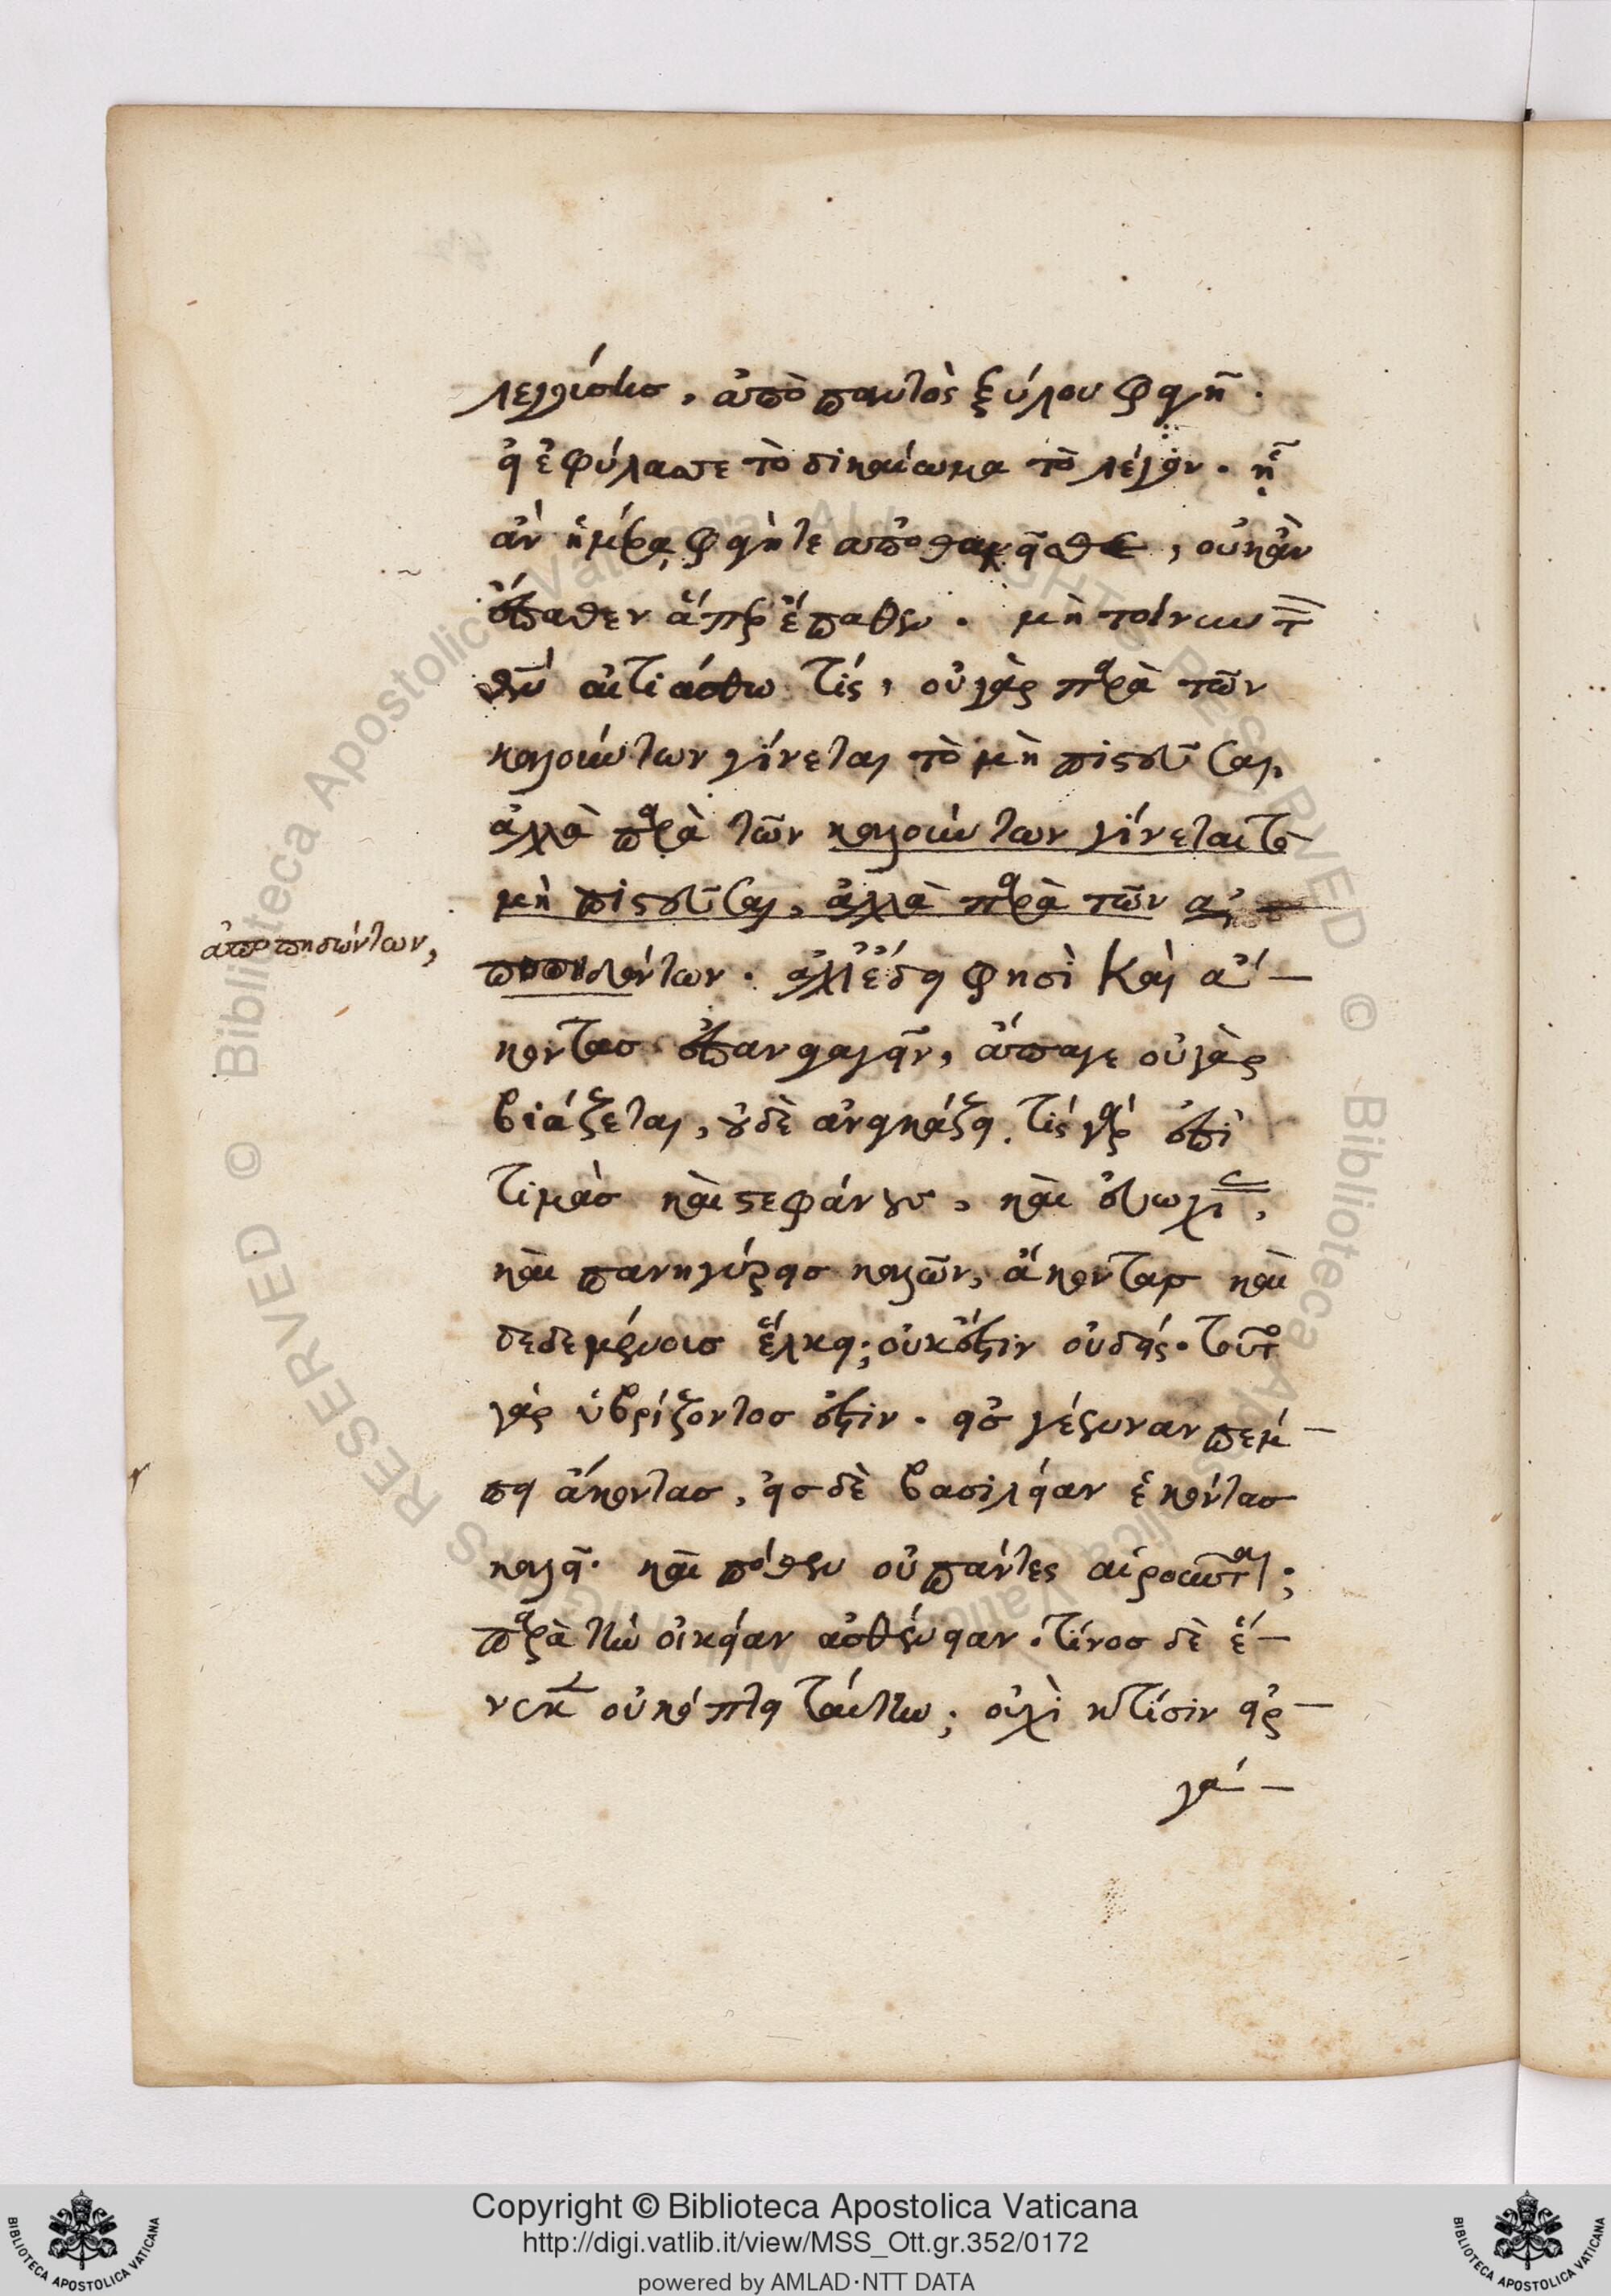 λεγούσης, ἀπὸ παντὸς ξύλου φαγῇ.
εἰ ἐφύλαττε τὸ δικαίωμα τὸ λέγον. ᾗ
ἂν ἡμέρᾳ φάγητε ἀποθανεῖσθε, οὐκ ἂν
ἔπαθεν ἅπερ ἔπαθεν. μὴ τοίνυν τ
θν αἰτιάσθω τίς, οὐ γὰρ παρὰ τῶν
καλούντων γίνεται τὸ μὴ πιστεῦσαι,
ἀλλὰ παρὰ τῶν καλούντων γίνεται τὸ
μὴ πιστεῦσαι, ἀλλὰ παρὰ τῶν ἀ
ἀποπηδώντων,
. ἀλλ' ἔδει φησὶ καὶ ἄ-
κοντας ἐπαναγαγεῖν, ἄπαγε οὐ γὰρ
βιάζεται, οὐδὲ ἀναγκάζει. τίς γὰρ ἐπὶ
τιμὰς καὶ στεφάνους, καὶ εὐωχί,
καὶ πανηγύρεις καλῶν, ἄκοντας καὶ
δεδεμένους ἕλκει; οὐκ ἔστιν οὐδείς. τοῦτο
γὰρ ὑβρίζοντος ἐστίν. εἰς γέενναν πέμ-
πει ἄκοντας, εἰς δὲ βασιλείαν ἑκόντας
καλεῖ. καὶ πόθεν οὐ πάντες αἱροῦνται;
παρὰ τὴν οἰκείαν ἀσθένειαν. τίνος δὲ ἕ-
νεκεν οὐ κόπτει ταύτην; οὐχὶ κτίσιν εἰρ-
γά-
Copyright © Biblioteca Apostolica Vaticana
http://digi.vatlib.it/view/MSS_Ott.gr.352/0172
powered by AMLAD·NTT DATA